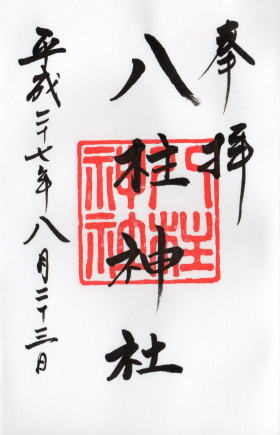 奉拝
八柱神社
平成二十七年八月二十三日